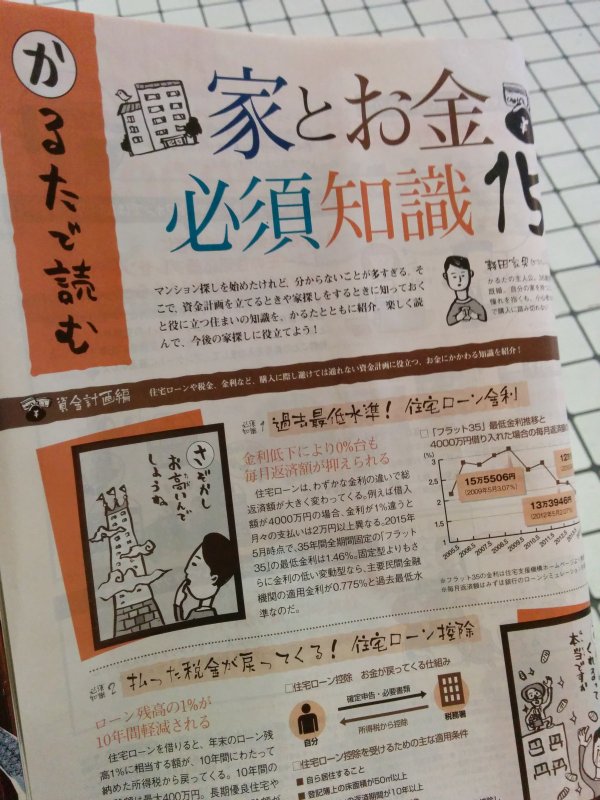 かるたで読む
家とお金
必須知識 15
マンション探しを始めたけれど、分からないことが多すぎる。そ
こで、資金計画を立てるときや家探しをするときに知っておく
と役に立つ住まいの知識を、かるたとともに紹介。楽しく読
んで、今後の家探しに役立てよう!
かるたの主人公。
憧れを抱くも、
で購入に踏み切れ
資金計画編
住宅ローンや税金、金利など、購入に際し避けては通れない資金計画に役立つ、お金にかかわる知識を紹介!
必須知識 1 過去最低水準! 住宅ローン金利
金利低下により0%台も
毎月返済額が抑えられる
住宅ローンは、わずかな金利の違いで総
返済額が大きく変わってくる。例えば借入
額が4000万円の場合、金利が1%違うと
月々の支払いは2万円以上異なる。2015年
5月時点で、35年間全期間固定の「フラット
35」の最低金利は1.46%。固定型よりもさ
らに金利の低い変動型なら、主要民間金融
機関の適用金利が0.775%と過去最低水
準なのだ。
さぞかし
お高いんで
しょうね
□「フラット35」最低金利推移と
4000万円借り入れた場合の毎月返済額
(%)
3.5
3
2.5
2
1.5
1
15万5506円
(2009年5月3.07%)
13万3946円
(2012年5月2.07%)
12万
2005.5
2006.5
2007.5
2008.5
2009.5
2010.5
2011.5
2012.5
※フラット35の金利は住宅支援機構ホームページ
※毎月返済額はみずほ銀行のローンシミュレーション
必須知識 2 払った税金が戻ってくる! 住宅ローン控除
ローン残高の1%が
10年間軽減される
住宅ローンを借りると、年末のローン残
高1%に相当する額が、10年間にわたって
納めた所得税から戻ってくる。10年間の
額は最大400万円。長期優良住宅や
□住宅ローン控除 お金が戻ってくる仕組み
確定申告・必要書類
所得税から控除
自分
税務署
□住宅ローン控除を受けるための主な適用条件
■自ら居住すること
■登記簿上の床面積が50㎡以上
の返済期間が10年以上
本当ですか